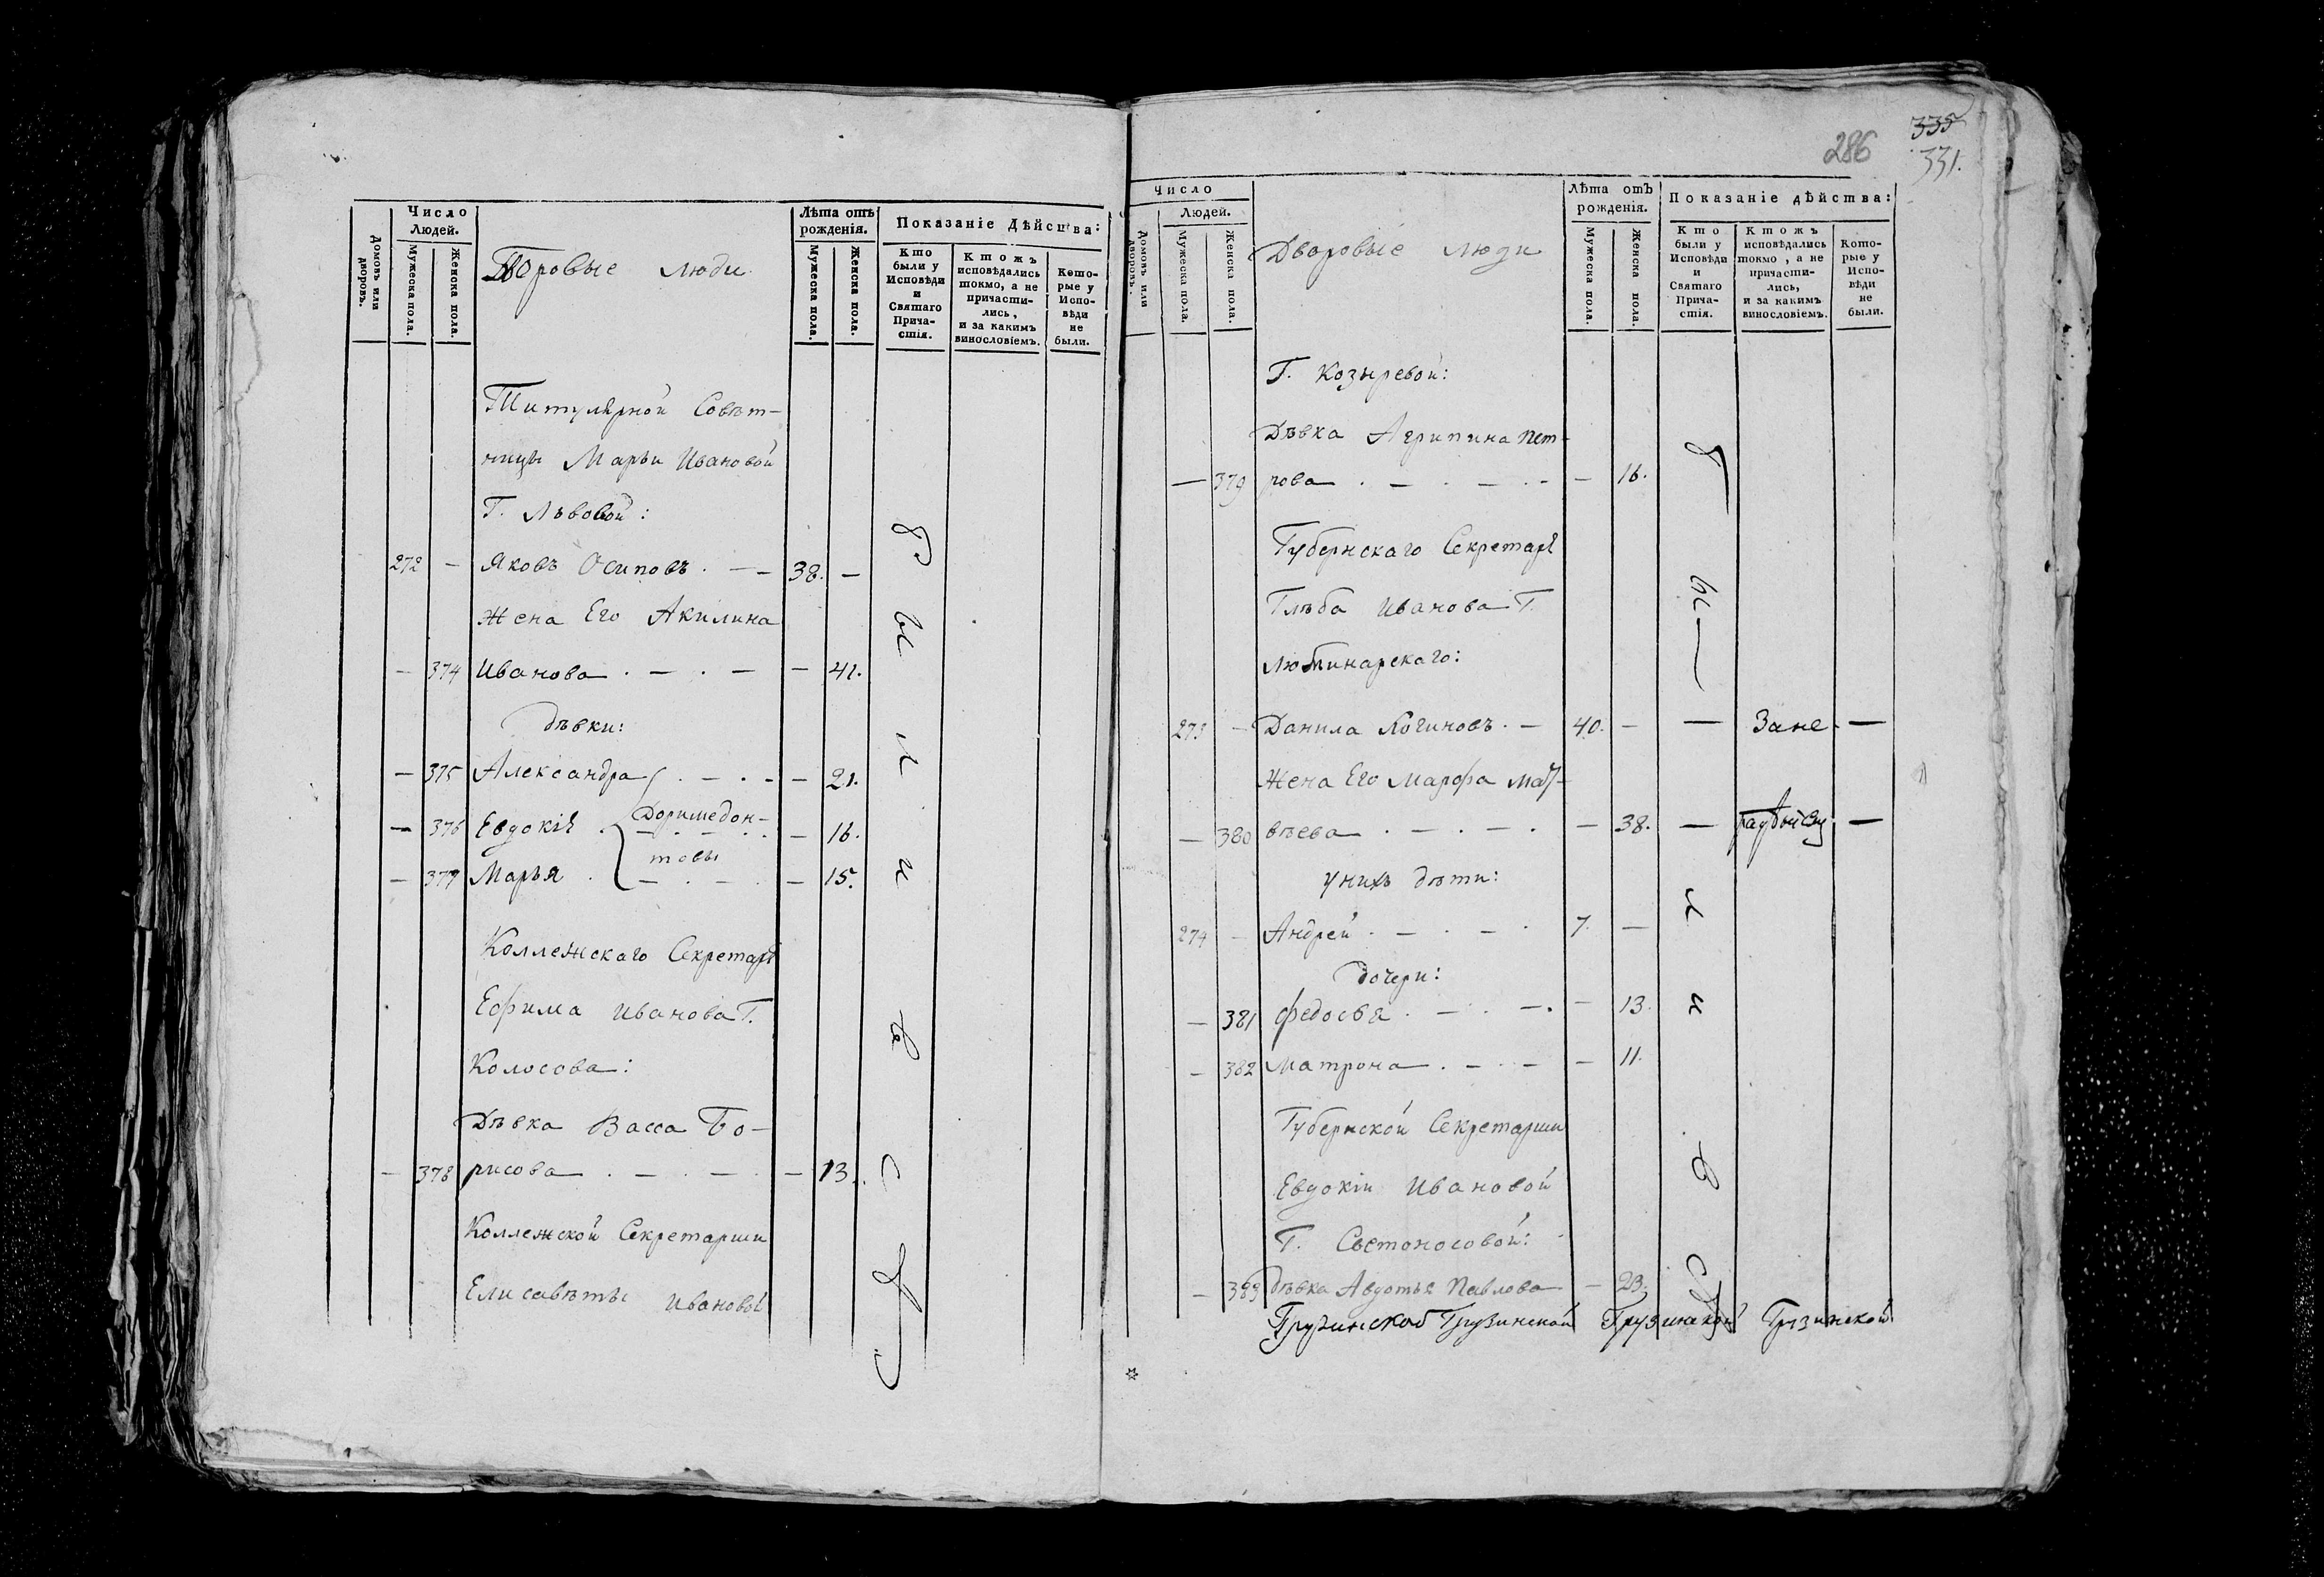 Число
Людей.
Домовъ или дворовъ.
Мужеска пола.
Женска пола.
Дворовые люди
Лѣта отъ рожденія.
Мужеска пола.
Женска пола.
Показаніе Дѣйства:
Кто были у Исповѣди и Святаго Причастія.
Ктожъ исповѣдались токмо, а не причастились, и за какимъ винословіемъ.
Которые у Исповѣди не были.
Титулярной Совѣт-
ницы Марьи Ивановой
Г. Львовой:
272 — Яковъ Осиповъ . — — 38. —
Жена Его Акилина
— 374 Иванова . — . — — 41.
дѣвки:
— 375 Александра . — . — — 21.
— 376 Евдокія . Доримедон- — 16.
— 377 Марья . товы — 15.
Коллежскаго Секретаря
Ефима Иванова Г.
Колосова:
Дѣвка Васса Бо-
— 378 рисова . — . — — 13.
Коллежской Секретарши
Елисавѣты Ивановой
б ы л и в с ѣ
286
335
331.
Число
Людей.
Домовъ или дворовъ.
Мужеска пола.
Женска пола.
Дворовые люди
Лѣта отъ рожденія.
Мужеска пола.
Женска пола.
Показаніе дѣйства:
Кто были у Исповѣди и Святаго Причастія.
Ктожъ исповѣдались токмо, а не причастились, и за какимъ винословіемъ.
Которые у Исповѣди не были.
Г. Козыревой:
Дѣвка Агрипина Пет-
— 379 рова . — . — . — — 16.
Губернскаго Секретаря
Глѣба Иванова Г.
273 — Данила Логиновъ . — 40. — — Зане- —
Жена Его Марфа Мат-
— 380 вѣева . — . — . — 38. — —
у нихъ дѣти:
274 — Андрей . — . — . 7. —
дочери:
— 381 Федосья . — . — . — 13.
— 382 Матрона . — . — — 11.
Губернской Секретарши
Евдокіи Ивановой
Г. Свѣтоносовой:
— 383 дѣвка Авдотья Павлова — 23.
б ы л и в с ѣ
Грузинской Грузинской Грузинской Грузинской